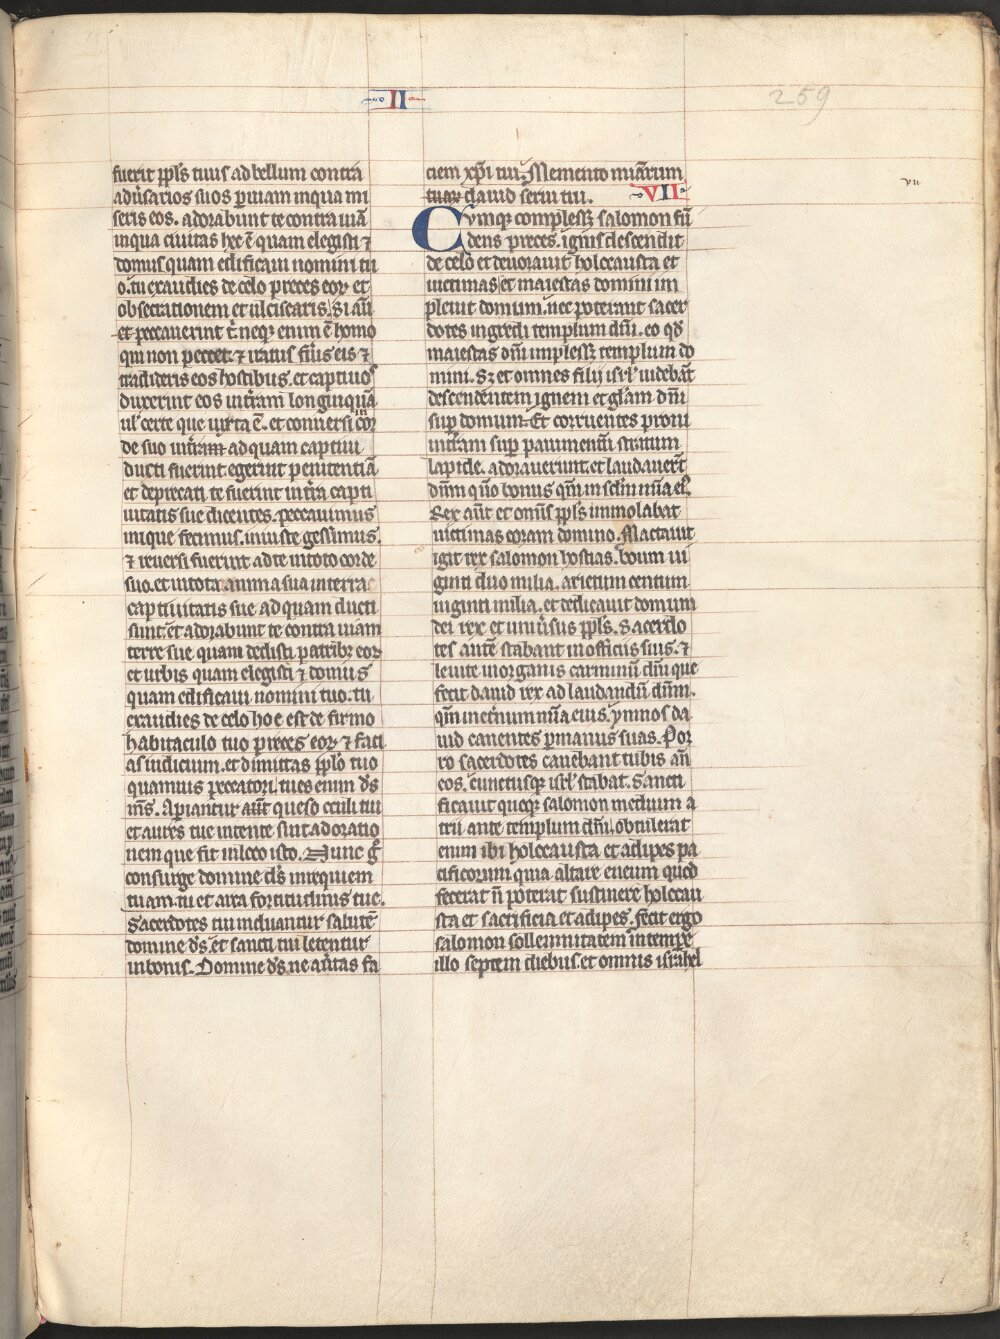 II
259
fuerit ppl's tuus ad bellum contra
adu'sarios suos p uiam in qua mi
seris eos. adorabunt te contra uiā
in qua ciuitas hec ē quam elegisti ⁊
domus quam edificaui nomini tu
o. tu exaudies de celo preces eoꝝ et
obsecrationem et ulciscaris. Si aū
et peccauerint t' neqꝫ enim ē homo
qui non peccet ⁊ iratus fu'is eis ⁊
tradideris eos hostibus. et captiuos
duxerint eos in t'ram longinquā
ul' certe que iuxta ē. et conuersi in cor
de suo in t'ram ad quam captiui
ducti fuerint egerint penitentiā
et deprecati te fuerint in t'ra capti
uitatis sue dicentes. peccauimus
inique fecimus. iniuste gessimus.
⁊ reuersi fuerint ad te in toto corde
suo. et in tota anima sua in terra
captiuitatis sue ad quam ducti
sunt et adorabunt te contra uiam
terre sue quam dedisti patribꝫ eoꝝ
et urbis quam elegisti ⁊ domus
quam edificaui nomini tuo. tu
exaudies de celo hoc est de firmo
habitaculo tuo preces eoꝝ ⁊ faci
as iudicium. et dimittas pplo tuo
quamuis peccatori. tu es enim ds
ms. Apiantur aut queso oculi tui
et aures tue intente sint ad oratio
nem que fit in loco isto. Nunc g
consurge domine ds in requiem
tuam tu et arca fortitudinis tue.
Sacerdotes tui induantur salutē
domine ds. et sancti tui letentur
in bonis. Domine ds. ne au'tas fa
ciem xpi tui. Memento mīarum
tuaꝝ dauid serui tui.
VII
vii
Cumqꝫ complessꝫ salomon fū
dens preces. ignis descendit
de celo et deuorauit holocausta et
uictimas et maiestas domini im
pleuit domum. nec poterant sacer
dotes ingredi templum dni. eo qd
maiestas dni implessꝫ templum do
mini. Sꝫ et omnes filii isrl' uidebāt
descendentem ignem et glam dni
sup domum. Et corruentes proni
in t'ram sup pauimentū stratum
lapide. adorauerunt. et laudauert
dnm qo bonus qm in sclm mia ei'.
Rex aut et omis ppls immolabat
uictimas coram domino. Mactauit
igit rex salomon hostias. boum ui
ginti duo milia. arietum centum
uiginti milia. et dedicauit domum
dei rex et uniu'sus ppls. Sacerdo
tes aute stabant in officiis suis. ⁊
leuite in organis carminū dni que
fecit dauid rex ad laudandū dnm.
qm in et'num mia eius. ymnos da
uid canentes p manus suas. Por
ro sacerdotes canebant tubis an
eos. cunctusqꝫ isrl' stabat. Sancti
ficauit quoqꝫ salomon medium a
trii ante templum dni. obtulerat
enim ibi holocausta et adipes pa
cificorum quia altare eneum quod
fecerat n̄ poterat sustinere holocau
sta et sacrificia et adipes. fecit ergo
salomon sollemnitatem in tempre
illo septem diebus. et omnis israhel